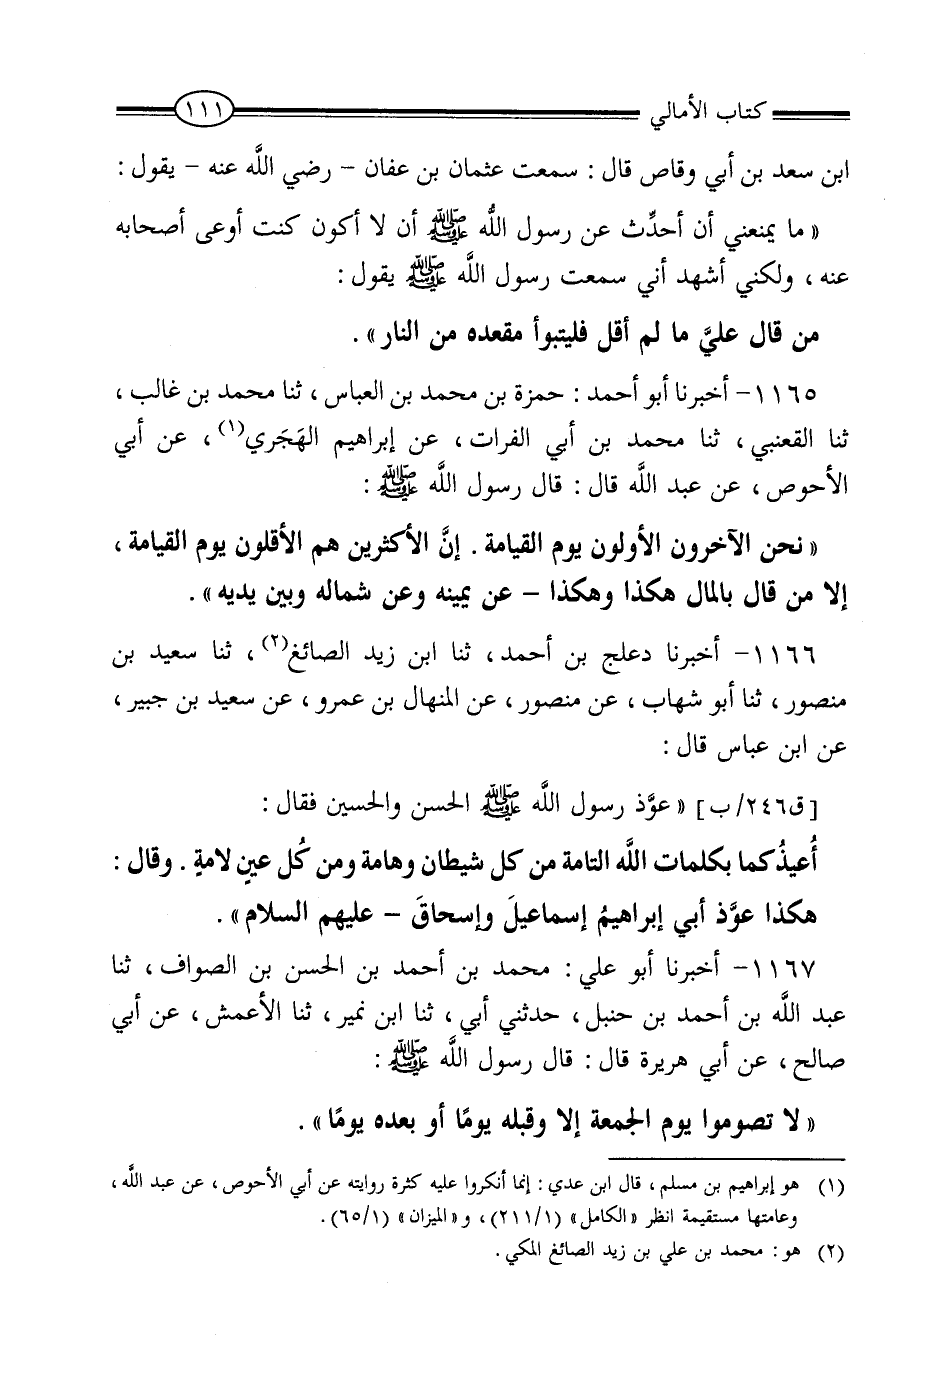 كتاب الأمالي ١١١
ابن سعد بن أبي وقاص قال : سمعت عثمان بن عفان - رضي اللَّه عنه - يقول :
« ما يمنعني أن أحدِّث عن رسول اللَّه ﷺ أن لا أكون كنت أوعى أصحابه
عنه ، ولكني أشهد أني سمعت رسول اللَّه ﷺ يقول :
من قال عليَّ ما لم أقل فليتبوأ مقعده من النار » .
١١٦٥- أخبرنا أبو أحمد : حمزة بن محمد بن العباس ، ثنا محمد بن غالب ،
ثنا القعنبي ، ثنا محمد بن أبي الفرات ، عن إبراهيم الهَجَري(١) ، عن أبي
الأحوص ، عن عبد اللَّه قال : قال رسول اللَّه ﷺ :
« نحن الآخرون الأولون يوم القيامة . إنَّ الأكثرين هم الأقلون يوم القيامة ،
إلا من قال بالمال هكذا وهكذا - عن يمينه وعن شماله وبين يديه » .
١١٦٦- أخبرنا دعلج بن أحمد ، ثنا ابن زيد الصائغ(٢) ، ثنا سعيد بن
منصور ، ثنا أبو شهاب ، عن منصور ، عن المنهال بن عمرو ، عن سعيد بن جبير ،
عن ابن عباس قال :
[ق٢٤٦/ب] « عوَّذ رسول اللَّه ﷺ الحسن والحسين فقال :
أُعيذُكما بكلمات اللَّه التامة من كل شيطان وهامة ومن كُل عينٍ لامةٍ . وقال :
هكذا عوَّذ أبي إبراهيمُ إسماعيلَ وإسحاقَ - عليهم السلام » .
١١٦٧- أخبرنا أبو علي : محمد بن أحمد بن الحسن بن الصواف ، ثنا
عبد اللَّه بن أحمد بن حنبل ، حدثني أبي ، ثنا ابن نمير ، ثنا الأعمش ، عن أبي
صالح ، عن أبي هريرة قال : قال رسول اللَّه ﷺ :
« لا تصوموا يوم الجمعة إلا وقبله يومًا أو بعده يومًا » .
(١) هو إبراهيم بن مسلم ، قال ابن عدي : إنما أنكروا عليه كثرة روايته عن أبي الأحوص ، عن عبد اللَّه ،
وعامتها مستقيمة انظر «الكامل» (٢١١/١) ، و«الميزان» (٦٥/١) .
(٢) هو : محمد بن علي بن زيد الصائغ المكي .